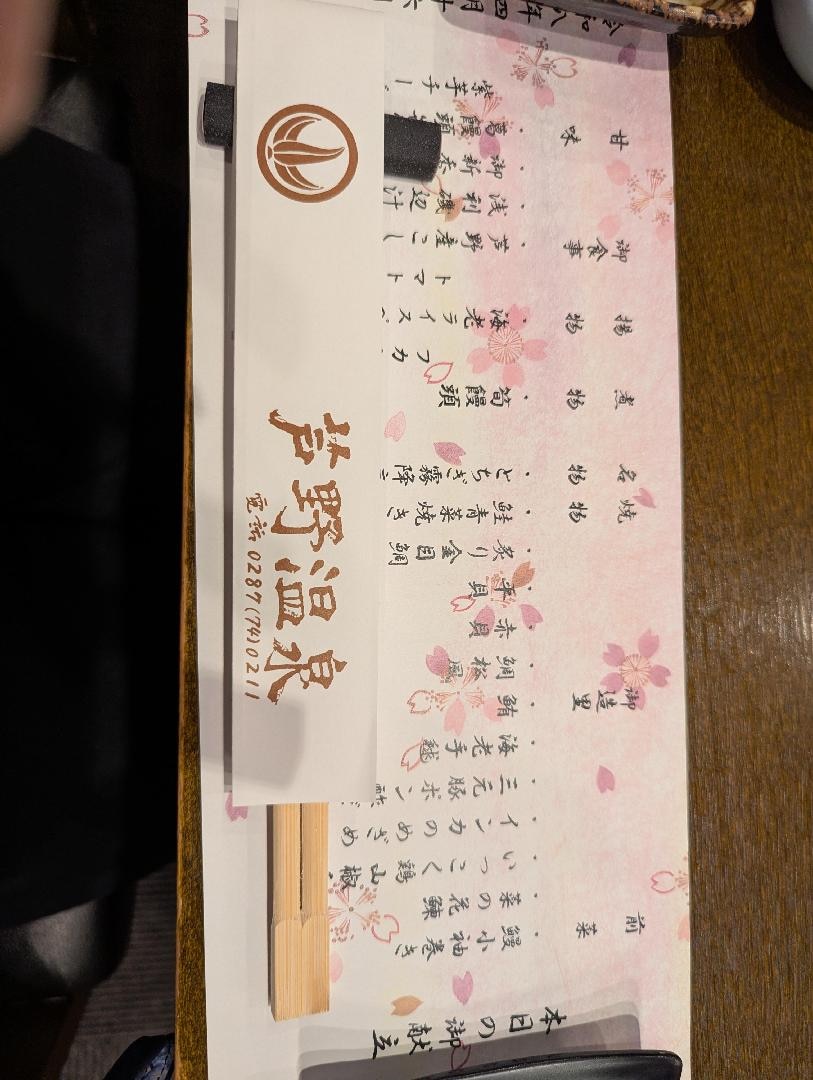 本日の御献立
前菜
・鰻小袖巻き
・菜の花鰊
・いっこく鶏山椒
・インカのめざめ
・三元豚ポン酢
・海老手毬
御造里
・鮪
・鯛松風
・赤貝
・平貝
・炙り金目鯛
焼物
・鮭青菜焼き
名物
・とちぎ霧降
煮物
・筍饅頭
揚物
・海老ライス
トマト
御食事
・芦野産こし
・浅利磯辺汁
・御新香
甘味
・葛饅頭
紫芋チー
令和八年四月十六
芦野温泉
電話 0287(74)0211